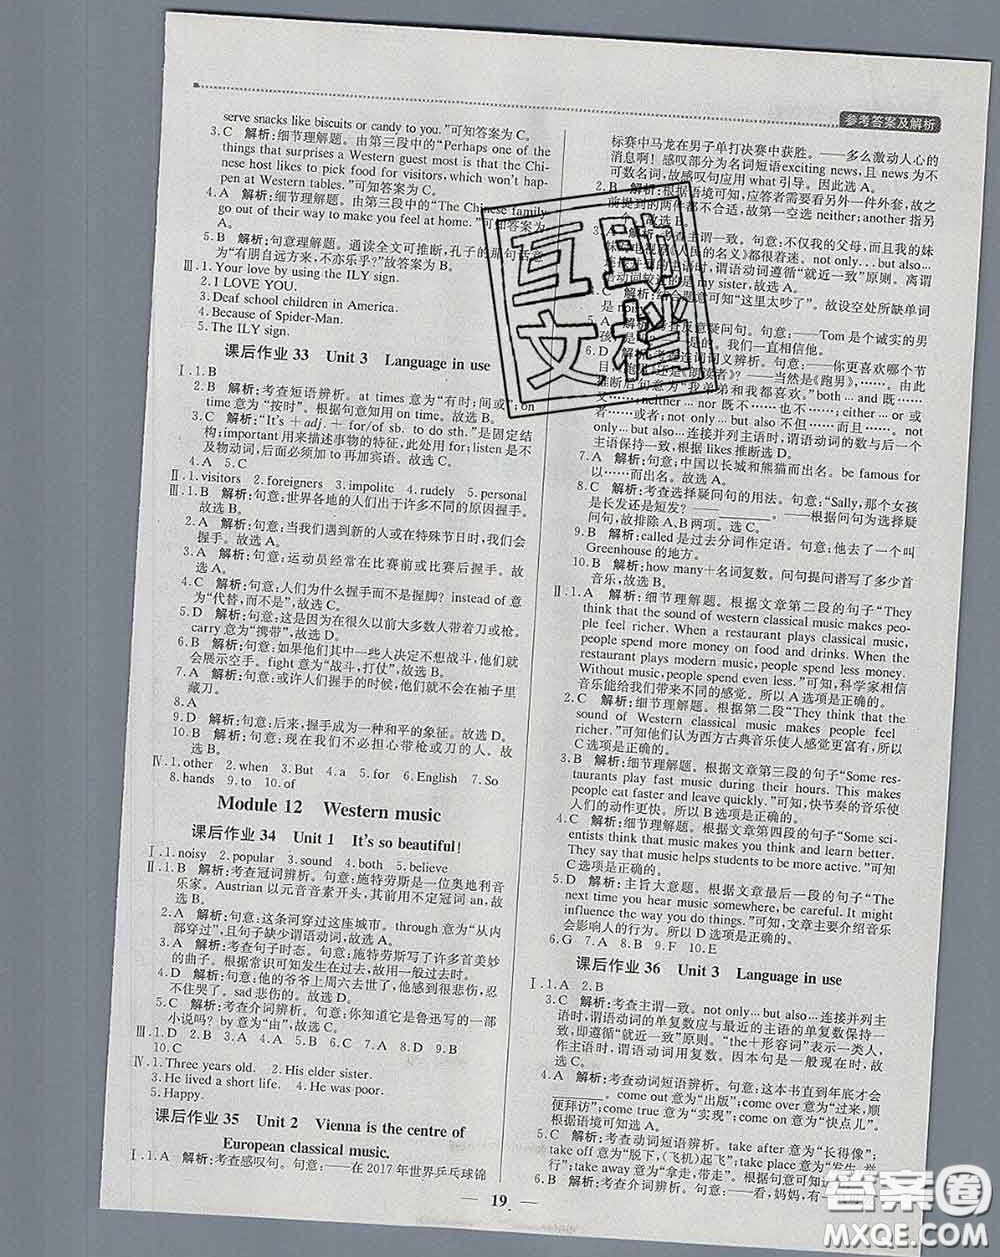 参考答案及解析
serve snacks like biscuits or candy to you."可知答案为 C。
3. C 解析:细节理解题。由第三段中的"Perhaps one of the
things that surprises a Western guest most is that the Chi-
nese hosts likes to pick food for visitors, which won't hap-
pen at Western tables."可知答案为 C。
4. A 解析:细节理解题。由第三段中的"The Chinese family
go out of their way to make you feel at home."可知答案为
A。
5. B 解析:句意理解题。通读全文可推断,孔子的那句话意
为"有朋自远方来,不亦乐乎?"故答案为 B。
Ⅲ. 1. Your love by using the ILY sign.
2. I LOVE YOU.
3. Deaf school children in America.
4. Because of Spider-Man.
5. The ILY sign.
课后作业 33 Unit 3 Language in use
Ⅰ. 1. B
2. B 解析:考查短语辨析。at times 意为"有时;间或";on
time 意为"按时"。根据句意可知用 on time。故选 B。
3. C 解析:"It's + adj. + for/of sb. to do sth."是固定结
构;important 用来描述事物的特征,此处用 for;listen 是不
及物动词,后面应加 to 再加宾语。故选 C。
4. A 5. C
Ⅱ. 1. visitors 2. foreigners 3. impolite 4. rudely 5. personal
Ⅲ. 1. B 解析:句意:世界各地的人们出于许多不同的原因握手。
故选 B。
2. A 解析:句意:当我们遇到新的人或在特殊节日时,我们会
握手。故选 A。
3. A 解析:句意:运动员经常在比赛前或比赛后握手。故
选 A。
4. C 解析:句意:人们为什么握手而不是握脚? instead of 意
为"代替,而不是",故选 C。
5. D 解析:句意:这是因为在很久以前大多数人带着刀或枪。
carry 意为"携带",故选 D。
6. B 解析:句意:如果他们其中一些人决定不想战斗,他们就
会展示空手。fight 意为"战斗,打仗",故选 B。
7. D 解析:句意:或许人们握手的时候,他们就不会在袖子里
藏刀。
8. A
9. D 解析:句意:后来,握手成为一种和平的象征。故选 D。
10. B 解析:句意:现在我们不必担心带枪或刀的人。故
选 B。
Ⅳ. 1. other 2. when 3. But 4. a 5. for 6. English 7. So
8. hands 9. to 10. of
Module 12 Western music
课后作业 34 Unit 1 It's so beautiful!
Ⅰ. 1. noisy 2. popular 3. sound 4. both 5. believe
Ⅱ. 1. B 解析:考查冠词辨析。句意:施特劳斯是一位奥地利音
乐家。Austrian 以元音音素开头,其前应用不定冠词 an。
故选 B。
2. A 解析:句意:这条河穿过这座城市。through 意为"从内
部穿过";且句子缺少谓语动词,故选 A。
3. A 解析:考查句子时态。句意:施特劳斯写了许多首美妙
的曲子。根据常识可知发生在过去,故选 A。
4. D 解析:句意:他的爷爷上周六去世了,他悲伤的忍不
住哭了。sad 悲伤的。故选 D。
5. C 解析:考查介词辨析。句意:你知道它是鲁迅写的一部
小说吗? by 意为"由",故选 C。
Ⅲ. 1. D 2. B 3. A 4. B 5. B 6. C 7. A 8. D 9. B
10. C
Ⅳ. 1. Three years old. 2. His elder sister.
3. He lived a short life. 4. He was poor.
5. Happy.
课后作业 35 Unit 2 Vienna is the centre of
European classical music.
Ⅰ. 1. A 解析:考查感叹句。句意:——在 2017 年世界乒乓球锦
标赛中马龙在男子单打决赛中获胜。——多么激动人心的
消息啊! 感叹部分为名词短语exciting news,且 news 为不
可数名词,故感叹句应用 what 引导。因此选 A。
2. B 解析:根据语境可知,应答者要看另外一件外套,故之
前提到的两件都不合适,故第一空选 neither;another 指另
解析:考查主谓一致。句意:不仅我的父母,而且我的妹
《人民的名义》都很着迷。not only... but also...连
时,谓语动词遵循"就近一致"原则。离谓
语动词较近的是 my sister,故选 A。
解析:结合题意可知"这里太吵了"。故设空处所缺单词
是 noisy
5. A 解析:考查反意疑问句。句意:——Tom 是个诚实的男
孩,是 ——是的。我们一直相信他。
6. D 解析:考查连词词义辨析。句意:——你更喜欢看哪个
《跑男》还是《朗读者》? ——当然是《跑男》,……。由
推断后句意为"我弟弟和我都喜欢。"both ... and 既……
又……;neither... nor 既不……也不……;either ... or 或
者……或者;not only... but also 不但……而且……。not
only... but also...连接并列主语时,谓语动词的数与后一个
主语保持一致。根据 likes 推断选 D。
7. A 解析:句意:中国以长城和熊猫而出名。be famous for
以……而出名。故选 A。
8. C 解析:考查选择疑问句的用法。句意:"Sally,那个女孩
是长发还是短发? ——________。——根据问句为选择疑
问句,故排除 A、B 两项。选 C。
9. B 解析:called 是过去分词作定语。句意:他去了一个叫
Greenhouse 的地方。
10. B 解析:how many+名词复数。问句提问谱写了多少首
音乐,故选 B。
Ⅱ. 1. A 解析:细节理解题。根据文章第二段的句子"They
think that the sound of western classical music makes peo-
ple feel richer. When a restaurant plays classical music,
people spend more money on food and drinks. When the
restaurant plays modern music, people spend less money.
Without music, people spend even less."可知,科学家相信
音乐能给我们带来不同的感觉。所以 A 选项是正确的。
2. C 解析:细节理解题。根据第二段"They think that the
sound of Western classical music makes people feel
richer."可知他们认为西方古典音乐使人感觉更富有,所以
C 选项是正确的。
3. B 解析:细节理解题。根据文章第三段的句子"Some res-
taurants play fast music during their hours. This makes
people eat faster and leave quickly."可知,快节奏的音乐使
人们的动作更快。所以 B 选项是正确的。
4. C 解析:细节理解题。根据文章第四段的句子"Some sci-
entists think that music makes you think and learn better.
They say that music helps students to be more active."可知,
C 选项是正确的。
5. D 解析:主旨大意题。根据文章最后一段的句子"The
next time you hear music somewhere, be careful. It might
influence the way you do things."可知,文章主要讲音乐
会影响人的行为。所以 D 选项是正确的。
6. G 7. A 8. B 9. F 10. E
课后作业 36 Unit 3 Language in use
Ⅰ. 1. A 2. B
3. C 解析:考查主谓一致。not only... but also...连接并列主
语时,谓语动词的单复数应与最近的主语的单复数保持一
致,即遵循"就近一致"原则。"the+形容词"表示一类人,
作主语时,谓语动词用复数。因为是一般现在时,故
选 C。
4. A 解析:考查动词短语辨析。句意:这本书直到年底才会
________。come out 意为"出版";come over 意为"(顺
便拜访)";come true 意为"实现";come on 意为"快点儿"。
根据语境可知选 A。
5. C 解析:考查动词短语辨析。take after 意为"长得像";
take off 意为"脱下,(飞机)起飞";take place 意为"发生";
take away 意为"拿走,带走"。故选 C。
6. B 解析:考查介词辨析。句意:——看,妈妈,有一
— 19 —
互助
文档
答案圈
MXQE.COM